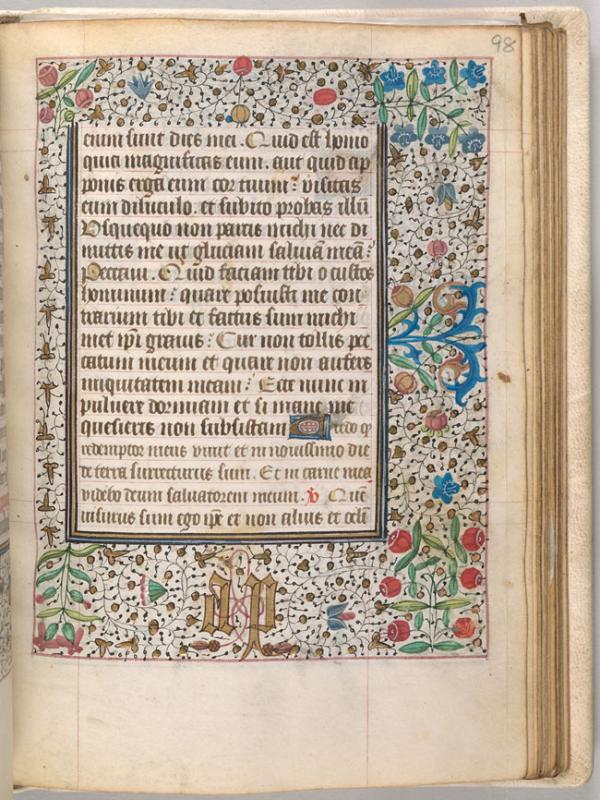 98
enim sunt dies mei. Quid est homo
quia magnificas eum. aut quid ap
ponis erga eum cor tuum: visitas
eum diluculo. et subito probas illū
Usquequo non parcis michi nec di
mittis me ut gluciam salivā meā:
Peccavi. Quid faciam tibi o custos
hominum: quare posuisti me con
trarium tibi et factus sum michi
met ipi gravis: Cur non tollis pec
catum meum et quare non aufers
iniquitatem meam: Ecce nunc in
pulvere dormiam et si mane me
quesieris non subsistam Credo q
redemptor meus vivit et in novissimo die
de terra surrecturus sum. Et in carne mea
videbo deum salvatorem meum. V Quē
visurus sum ego ipe et non alius et celi